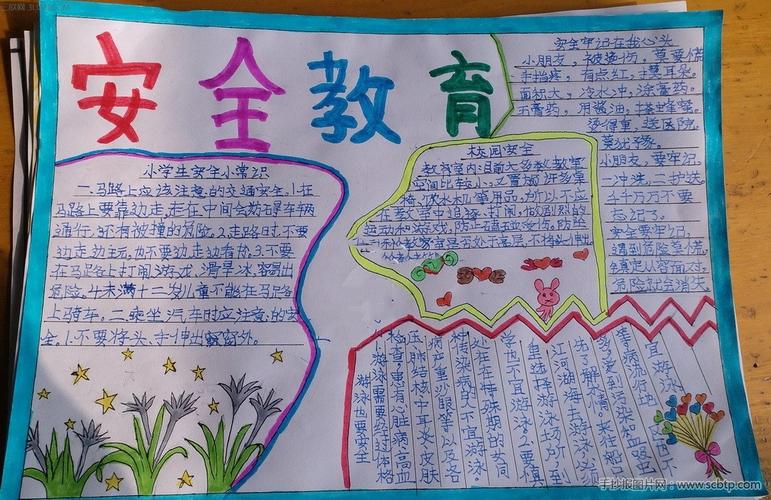 安全教育
小学生安全小常识
一.马路上应该注意的交通安全.1.在
马路上要靠边走,走在中间会妨碍车辆
通行,还有被撞的危险.2.走路时,不要
边走边玩,也不要边走边看书.3.不要
在马路上打闹游戏,滑旱冰,容易出
危险.4.未满十二岁儿童不能在马路
上骑车.二.乘坐汽车时应注意的安
全.1.不要将头、手伸出窗外。
校园安全
教室内:目前大多数教室
空间比较小,又置放许多桌
椅、饮水机等用品,所以不应
在教室中追逐、打闹,做剧烈的
运动和游戏,防止磕碰受伤。
安全牢记在我心头
小朋友,被烫伤,莫要慌
手指疼,有点红,捏耳朵。
面积大,冷水冲,涂膏药。
无膏药,用酱油,
烫得重,送医院。
莫犹豫。
小朋友,要牢记。
一冲洗,二护送。
千千万万不要
忘记了。
安全要牢记。
遇到危险莫慌
镇定从容面对
危险就会消失
游泳也要安全
游泳需要经过体格
检查.患有心脏病、高血
压、肺结核、中耳炎、皮肤
病、严重沙眼等以及各
种传染病的人不宜游泳。
处在特殊期的女同
学也不宜游泳.2.要慎
重选择游泳场所,到
江河湖海去游泳,必
先了解水情.
手抄报图片网 www.scbtp.com